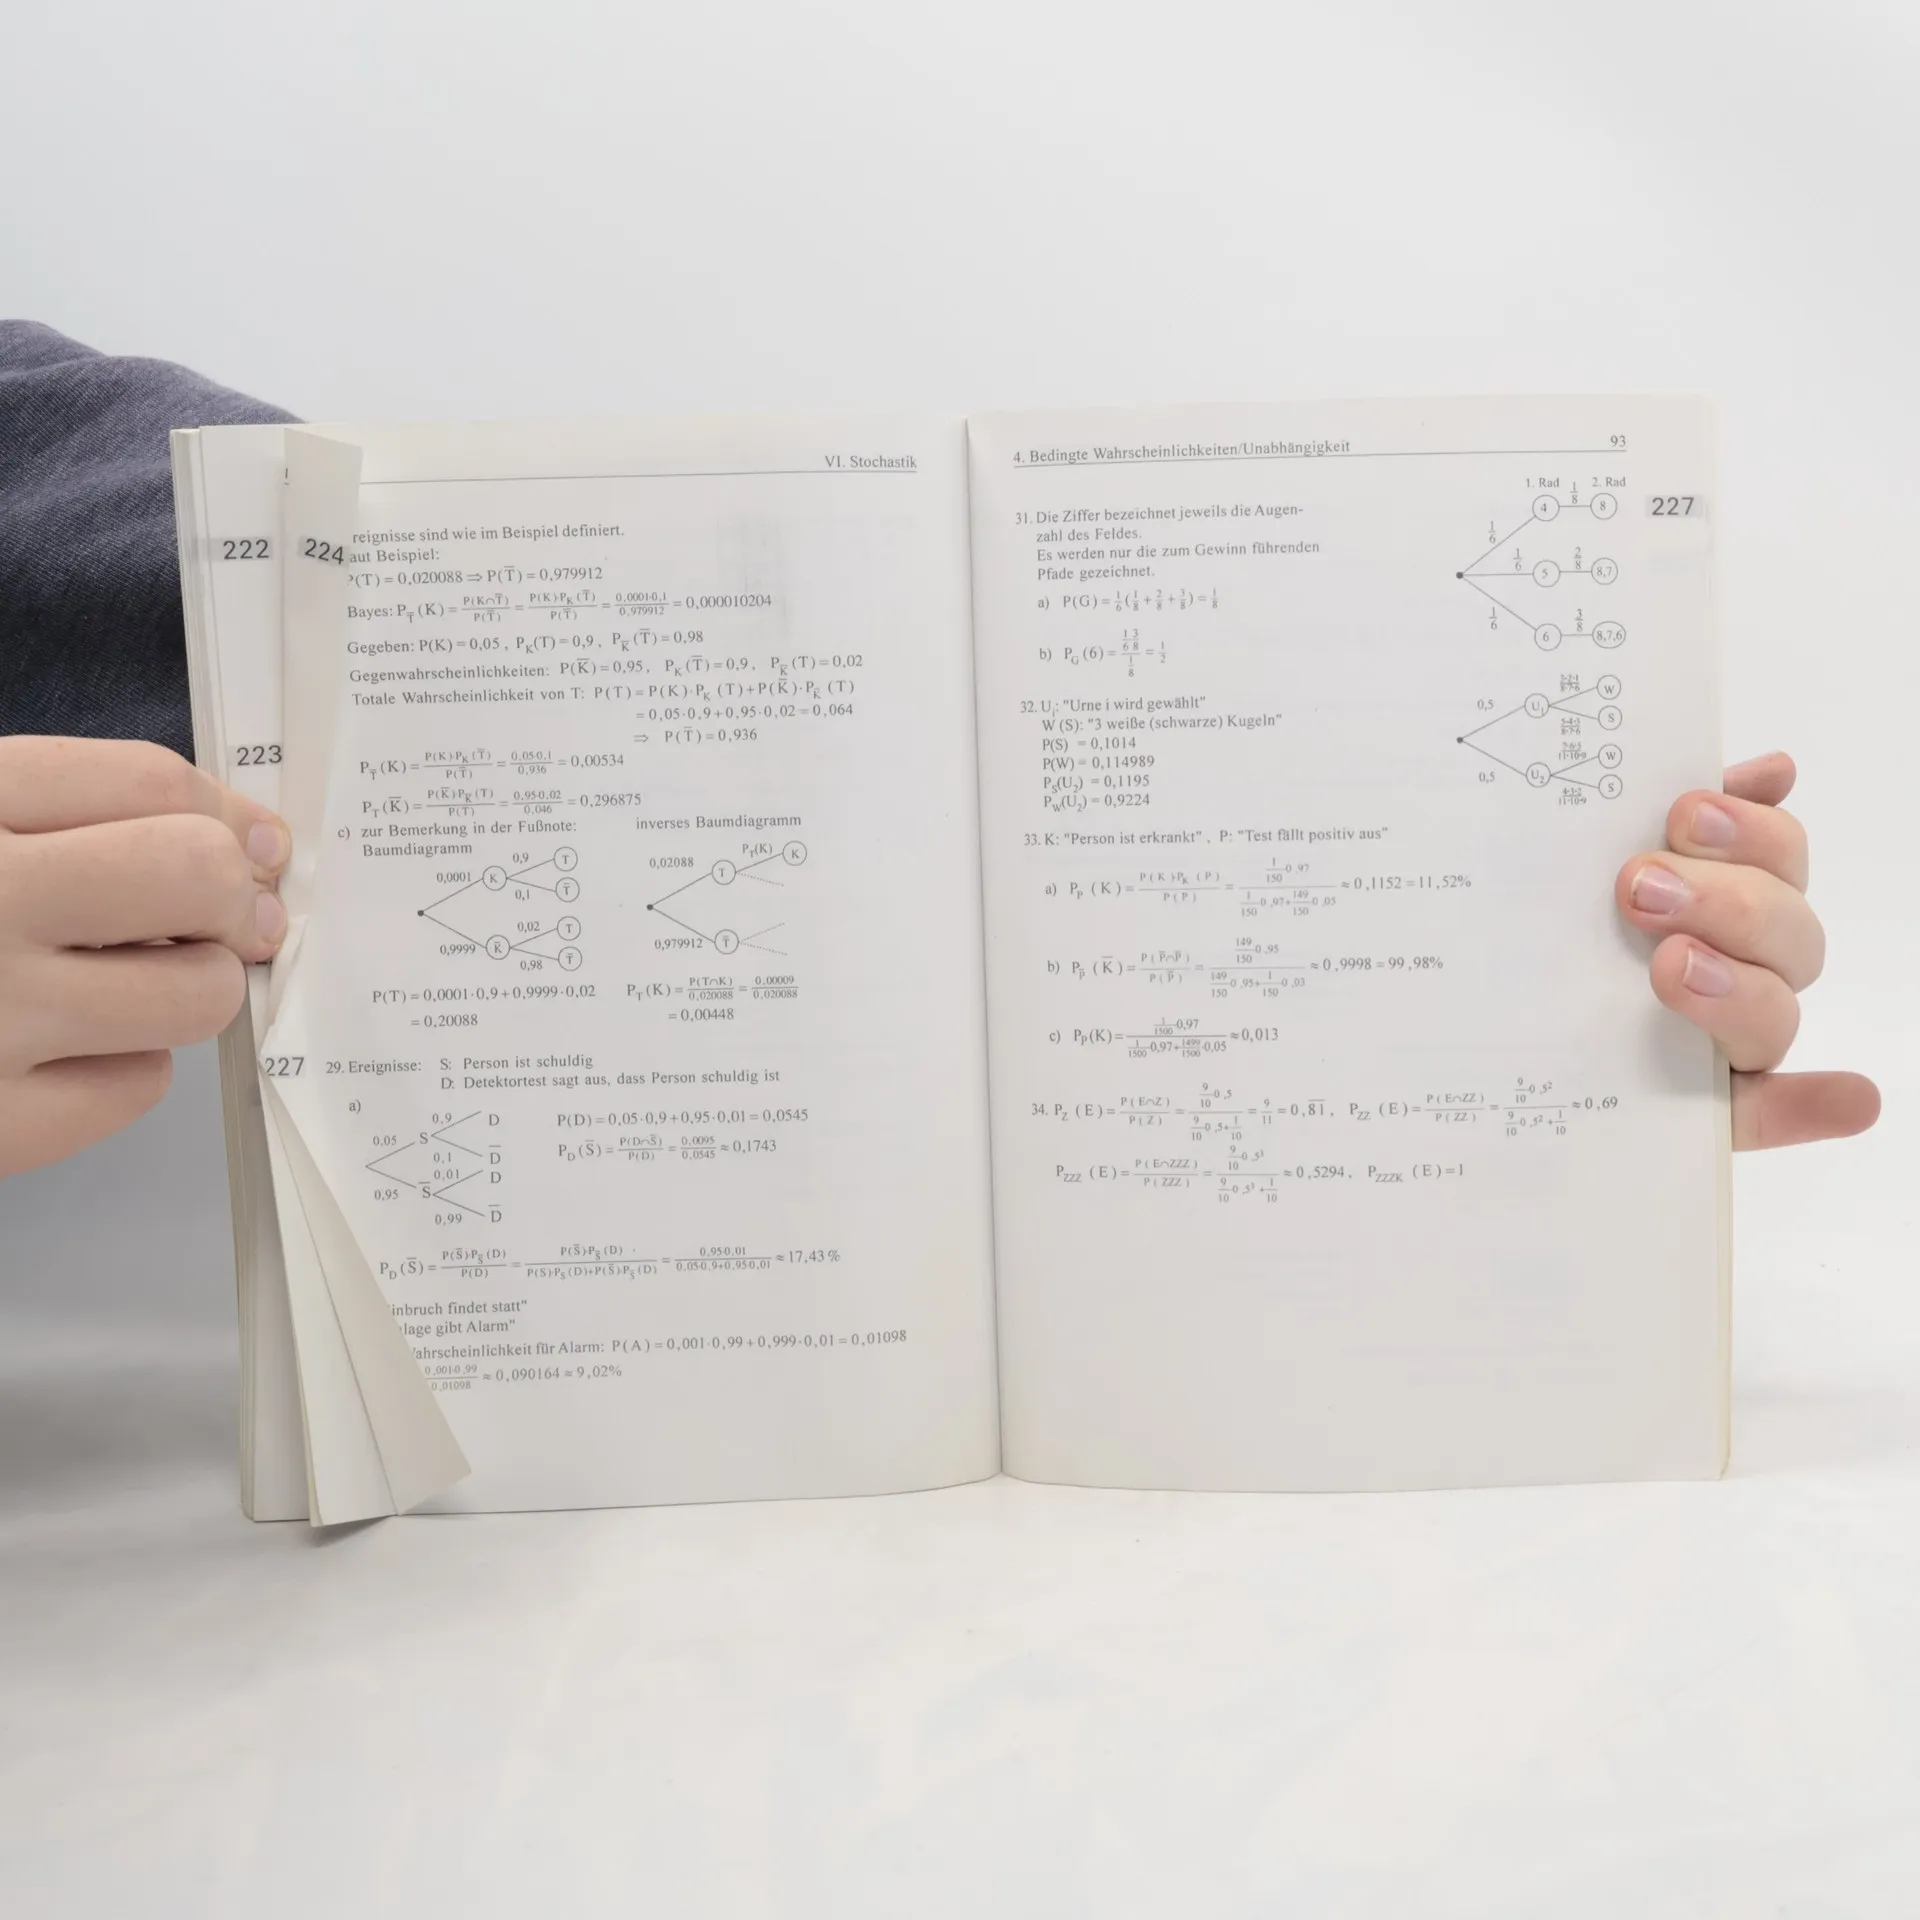 VI. Stochastik
222
224
reignisse sind wie im Beispiel definiert.
aut Beispiel:
P(T) = 0,020088 ⇒ P(T̅) = 0,979912
Bayes: P_T̅ (K) = P(K∩T̅)/P(T̅) = P(K)·P_K(T̅)/P(T̅) = 0,0001·0,1/0,979912 = 0,000010204
Gegeben: P(K) = 0,05 , P_K(T) = 0,9 , P_K̅(T̅) = 0,98
Gegenwahrscheinlichkeiten: P(K̅) = 0,95, P_K(T̅) = 0,9, P_K̅(T) = 0,02
Totale Wahrscheinlichkeit von T: P(T) = P(K)·P_K (T) + P(K̅)·P_K̅ (T)
= 0,05·0,9 + 0,95·0,02 = 0,064
⇒ P(T̅) = 0,936
223
P_T̅ (K) = P(K)·P_K(T̅)/P(T̅) = 0,05·0,1/0,936 = 0,00534
P_T (K̅) = P(K̅)·P_K̅(T)/P(T) = 0,95·0,02/0,046 = 0,296875
c) zur Bemerkung in der Fußnote:
Baumdiagramm
0,0001 K 0,9 T
0,1 T̅
0,9999 K̅ 0,02 T
0,98 T̅
inverses Baumdiagramm
0,02088 T P_T(K) K
0,979912 T̅
P(T) = 0,0001·0,9 + 0,9999·0,02
= 0,20088
P_T (K) = P(T∩K)/0,020088 = 0,00009/0,020088
= 0,00448
227
29. Ereignisse: S: Person ist schuldig
D: Detektortest sagt aus, dass Person schuldig ist
a)
0,05 S 0,9 D
0,1 D̅
0,95 S̅ 0,01 D
0,99 D̅
P(D) = 0,05·0,9 + 0,95·0,01 = 0,0545
P_D (S̅) = P(D∩S̅)/P(D) = 0,0095/0,0545 ≈ 0,1743
P_D (S̅) = P(S̅)·P_S̅ (D)/P(D) = P(S̅)·P_S̅ (D)/P(S)·P_S (D)+P(S̅)·P_S̅ (D) = 0,95·0,01/0,05·0,9+0,95·0,01 ≈ 17,43 %
inbruch findet statt"
lage gibt Alarm"
ahrscheinlichkeit für Alarm: P(A) = 0,001·0,99 + 0,999·0,01 = 0,01098
0,001·0,99/0,01098 ≈ 0,090164 ≈ 9,02%
4. Bedingte Wahrscheinlichkeiten/Unabhängigkeit 93
227
31. Die Ziffer bezeichnet jeweils die Augen-
zahl des Feldes.
Es werden nur die zum Gewinn führenden
Pfade gezeichnet.
a) P(G) = 1/6 (1/8 + 2/8 + 3/8) = 1/8
b) P_G (6) = 1/6 3/8 / 1/8 = 1/2
1. Rad 2. Rad
1/6 4 1/8 8
1/6 5 2/8 8,7
1/6 6 3/8 8,7,6
32. U_i: "Urne i wird gewählt"
W (S): "3 weiße (schwarze) Kugeln"
P(S) = 0,1014
P(W) = 0,114989
P_S(U_2) = 0,1195
P_W(U_2) = 0,9224
0,5 U_1 3·2·1/8·7·6 W
5·4·3/8·7·6 S
0,5 U_2 7·6·5/11·10·9 W
4·3·2/11·10·9 S
33. K: "Person ist erkrankt" , P: "Test fällt positiv aus"
a) P_P (K) = P(K)·P_K (P)/P(P) = 1/150·0,97 / 1/150·0,97+149/150·0,05 ≈ 0,1152 = 11,52%
b) P_P̅ (K̅) = P(P̅∩P̅)/P(P̅) = 149/150·0,95 / 149/150·0,95+1/150·0,03 ≈ 0,9998 = 99,98%
c) P_P(K) = 1/1500·0,97 / 1/1500·0,97+1499/1500·0,05 ≈ 0,013
34. P_Z (E) = P(E∩Z)/P(Z) = 9/10·0,5 / 9/10·0,5+1/10 = 9/11 = 0,8̅1̅ , P_ZZ (E) = P(E∩ZZ)/P(ZZ) = 9/10·0,5² / 9/10·0,5²+1/10 ≈ 0,69
P_ZZZ (E) = P(E∩ZZZ)/P(ZZZ) = 9/10·0,5³ / 9/10·0,5³+1/10 ≈ 0,5294 , P_ZZZK (E) = 1